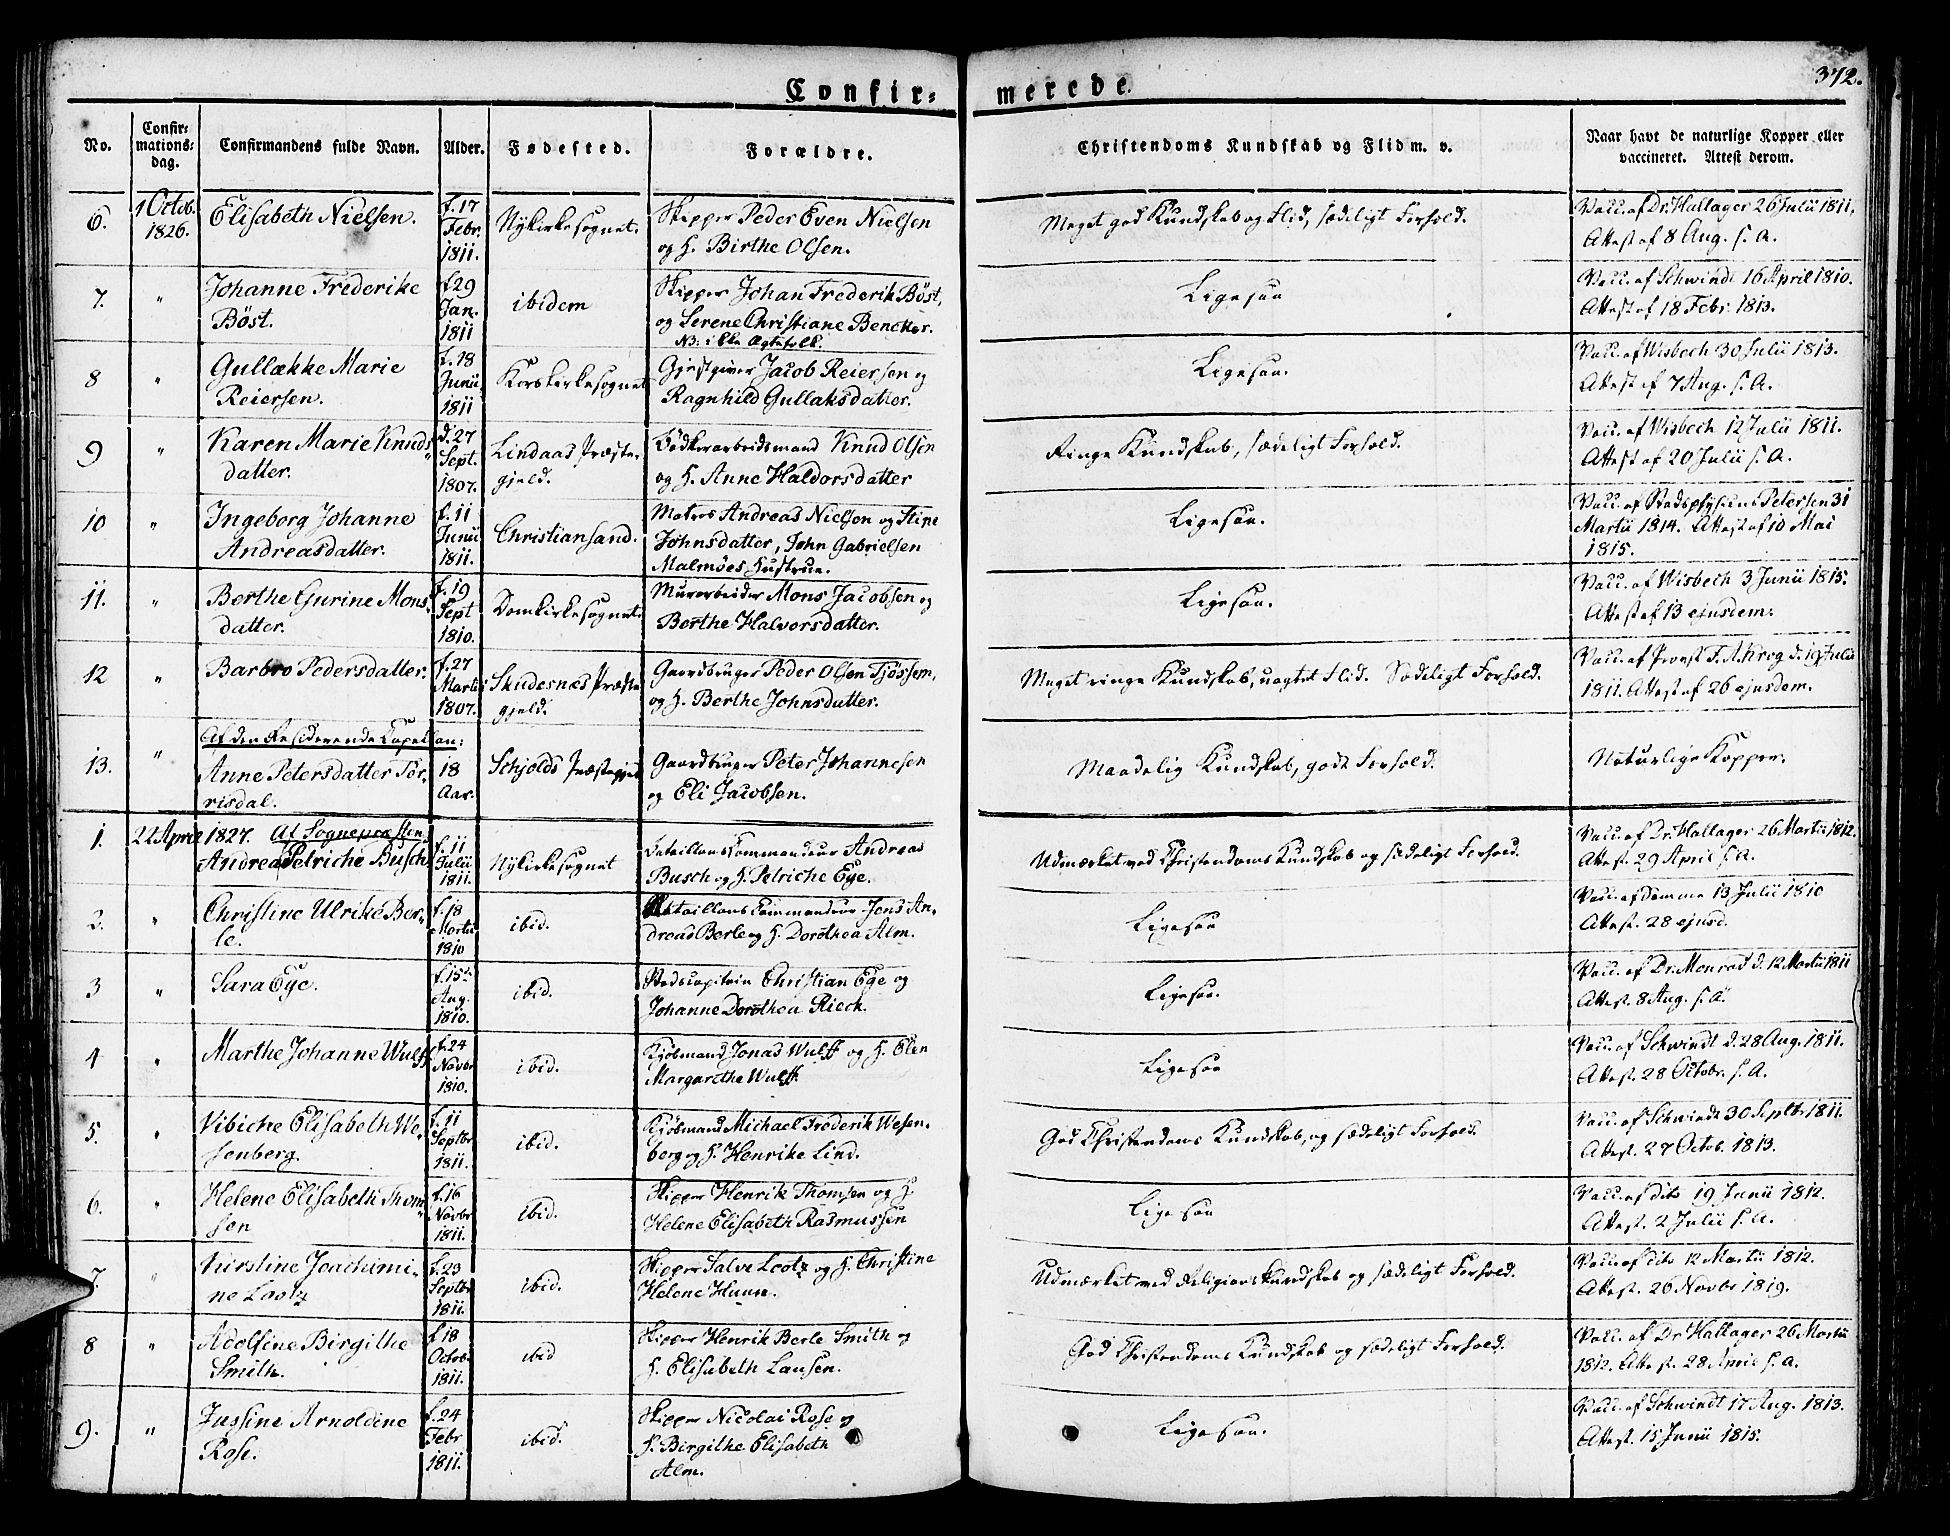 Confir=
merede.
372.
No.
Confir=
mations=
dag.
Confirmandens fulde Navn.
Alder.
Fødested.
Forældre.
Christendoms Kundskab og Flid m. v.
Naar havt de naturlige Kopper eller
vaccineret. Attest derom.
6.
1 Octob.
1826.
Elisabeth Nielsen.
f. 17
Febr.
1811.
Nykirkesognet.
Skipper Peder Even Nielsen
og H. Birthe Olsen.
Meget god Kundskab og Flid, sædeligt Forhold.
Vacc. af Dr. Hallager 26 Julii 1811,
Attest af 8 Aug. s. A.
7.
"
Johanne Frederike
Böst.
f. 29
Jan.
1811
ibidem
Skipper Johan Frederik Böst,
og Serene Christiane Bencker.
NB: ikke Ægtefolk.
Ligesaa
Vacc. af Schwindt 16 April 1810.
Attest af 18 Febr. 1813.
8
"
Gullække Marie
Reiersen.
f. 18
Junii
1811
Korskirkesognet
Gjestgiver Jacob Reiersen og
Ragnhild Gullaksdatter.
Ligesaa.
Vacc. af Wisbech 30 Julii 1813.
Attest af 7 Aug. s. A.
9
"
Karen Marie Knuds
datter.
d. 27
Sept.
1807.
Lindaas Præste-
gjeld.
Bödkerarbeidsmand Knud Olsen
og H. Anne Haldorsdatter
Ringe Kundskab, sædeligt Forhold.
Vacc. af Wisbech 12 Julii 1811.
Attest af 20 Julii s. A.
10
"
Ingeborg Johanne
Andreasdatter.
f. 11
Junii
1811.
Christiansand.
Matros Andreas Nielsen og Stine
Johnsdatter, John Gabrielsen
Malmöes Hustrue.
Ligesaa.
Vacc. af Stadsphysicus Petersen 31
Martii 1814. Attest af 10 Mai
1815.
11.
"
Berthe Gurine Mons
datter.
f. 19
Sept
1810.
Domkirkesognet.
Murarbeider Mons Jacobsen og
Berthe Halvorsdatter.
Ligesaa.
Vacc. af Wisbech 3 Junii 1815.
Attest af 13 ejusdem.
12
Barbro Pedersdatter.
f. 27
Martii
1807.
Skudesnæs Præste
gjeld.
Gaardbruger Peder Olsen Tjössem,
og H. Berthe Johnsdatter.
Meget ringe Kundskab, uagtet Flid. Sædeligt Forhold.
Vacc. af Provst F. A. Krog d. 19 Julii
1811. Attest af 26 ejusdem.
Af den Residerende Capellan:
13.
"
Anne Petersdatter Tor-
risdal.
18
Aar.
Schjolds Præstegjeld
Gaardbruger Peter Johannesen
og Eli Jacobsen.
Maadelig Kundskab, godt Forhold.
Naturlige Kopper.
1.
22 April 1827. Af Sognepræsten.
Andrea Petriche Busch
f. 11
Julii
1811.
Nykirkesognet
Bataillons Commandeur Andreas
Busch og H. Petriche Ege.
Udmærket ved Christendoms Kundskab og sædeligt Forhold.
Vacc. af Dr. Hallager 26 Martii 1812.
Attest. 29 April s. A.
2.
"
Christine Ulriké Ber-
le.
f. 18
Martii
1810
ibid.
Bataillons Commandeur Jens An-
dreas Berle og H. Dorothea Alm.
Ligesaa
Vacc. af Demme 13 Julii 1810
Attest. 28 ejusd.
3
"
Sara Ege.
f. 15
Aug.
1810.
ibid.
Stadscapitain Christian Ege og
Johanne Dorothea Rieck.
Ligesaa.
Vacc. af Dr. Monrad d. 12 Martii 1811
Attest. 8 Aug. s. A.
4
"
Marthe Johanne Wulff
f. 24
Novbr
1810.
ibid.
Kjöbmand Jonas Wulff og H. Elen
Margarethe Wulff.
Ligesaa
Vacc. af Schwindt d. 28 Aug. 1811.
Attest. 28 Octobr. s. A.
5.
"
Vibiche Elisabeth We-
senberg.
f. 11
Septbr
1811.
ibid.
Kjöbmand Michael Frederik Wesen-
berg og H. Henrike Lind.
God Christendoms Kundskab, og sædeligt Forhold.
Vacc. af Schwindt 30 Septbr 1811.
Attest. 27 Octob. 1813.
6.
"
Helene Elisabeth Thom
sen
f. 16
Novbr
1811.
ibid.
Skipper Henrik Thomsen og H.
Helene Elisabeth Rasmussen
Ligesaa
Vacc. af dito 19 Junii 1812.
Attest. 2 Julii s. A.
7.
"
Kirstine Joachimi-
ne Lootz
f. 23
Septbr
1811.
ibid.
Skipper Salve Lootz og H. Christine
Helene Huun.
Udmærket ved Religions Kundskab og sædeligt Forhold.
Vacc. af dito 12 Martii 1812.
Attest. 26 Novbr 1819.
8
"
Adolfine Birgithe
Smith.
f. 18
Octob.
1811.
ibid
Skipper Henrik Berle Smith og
H. Elisabeth Lausen.
God Christendoms Kundskab og sædeligt Forhold.
Vacc. af Dr Hallager 26 Martii
1812. Attest. 28 April s. A.
9.
"
Jussine Arnoldine
Rose.
f. 24
Febr
1811.
ibid.
Skipper Nicolai Rose og
H. Birgithe Elisabeth
Alm.
Ligesaa.
Vacc. af Schwindt 17 Aug. 1813.
Attest. 15 Junii 1815.